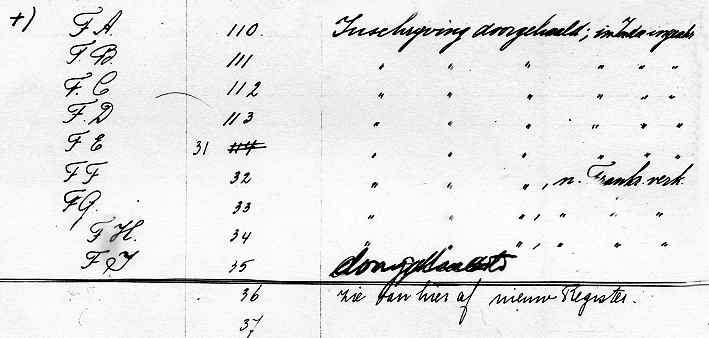 +) F A. 110. Inschryving doorgehaald; in
F. B. 111 " " " " " "
F. C 112 " " " " " "
F. D 113 " " " " " "
F E 31 114 " " " " " "
F F 32 " " ", n. Frank. verk.
F G. 33 " " ", " " "
F H. 34 " ", " " "
F J 35
36 zie van hier af nieuw Register.
37